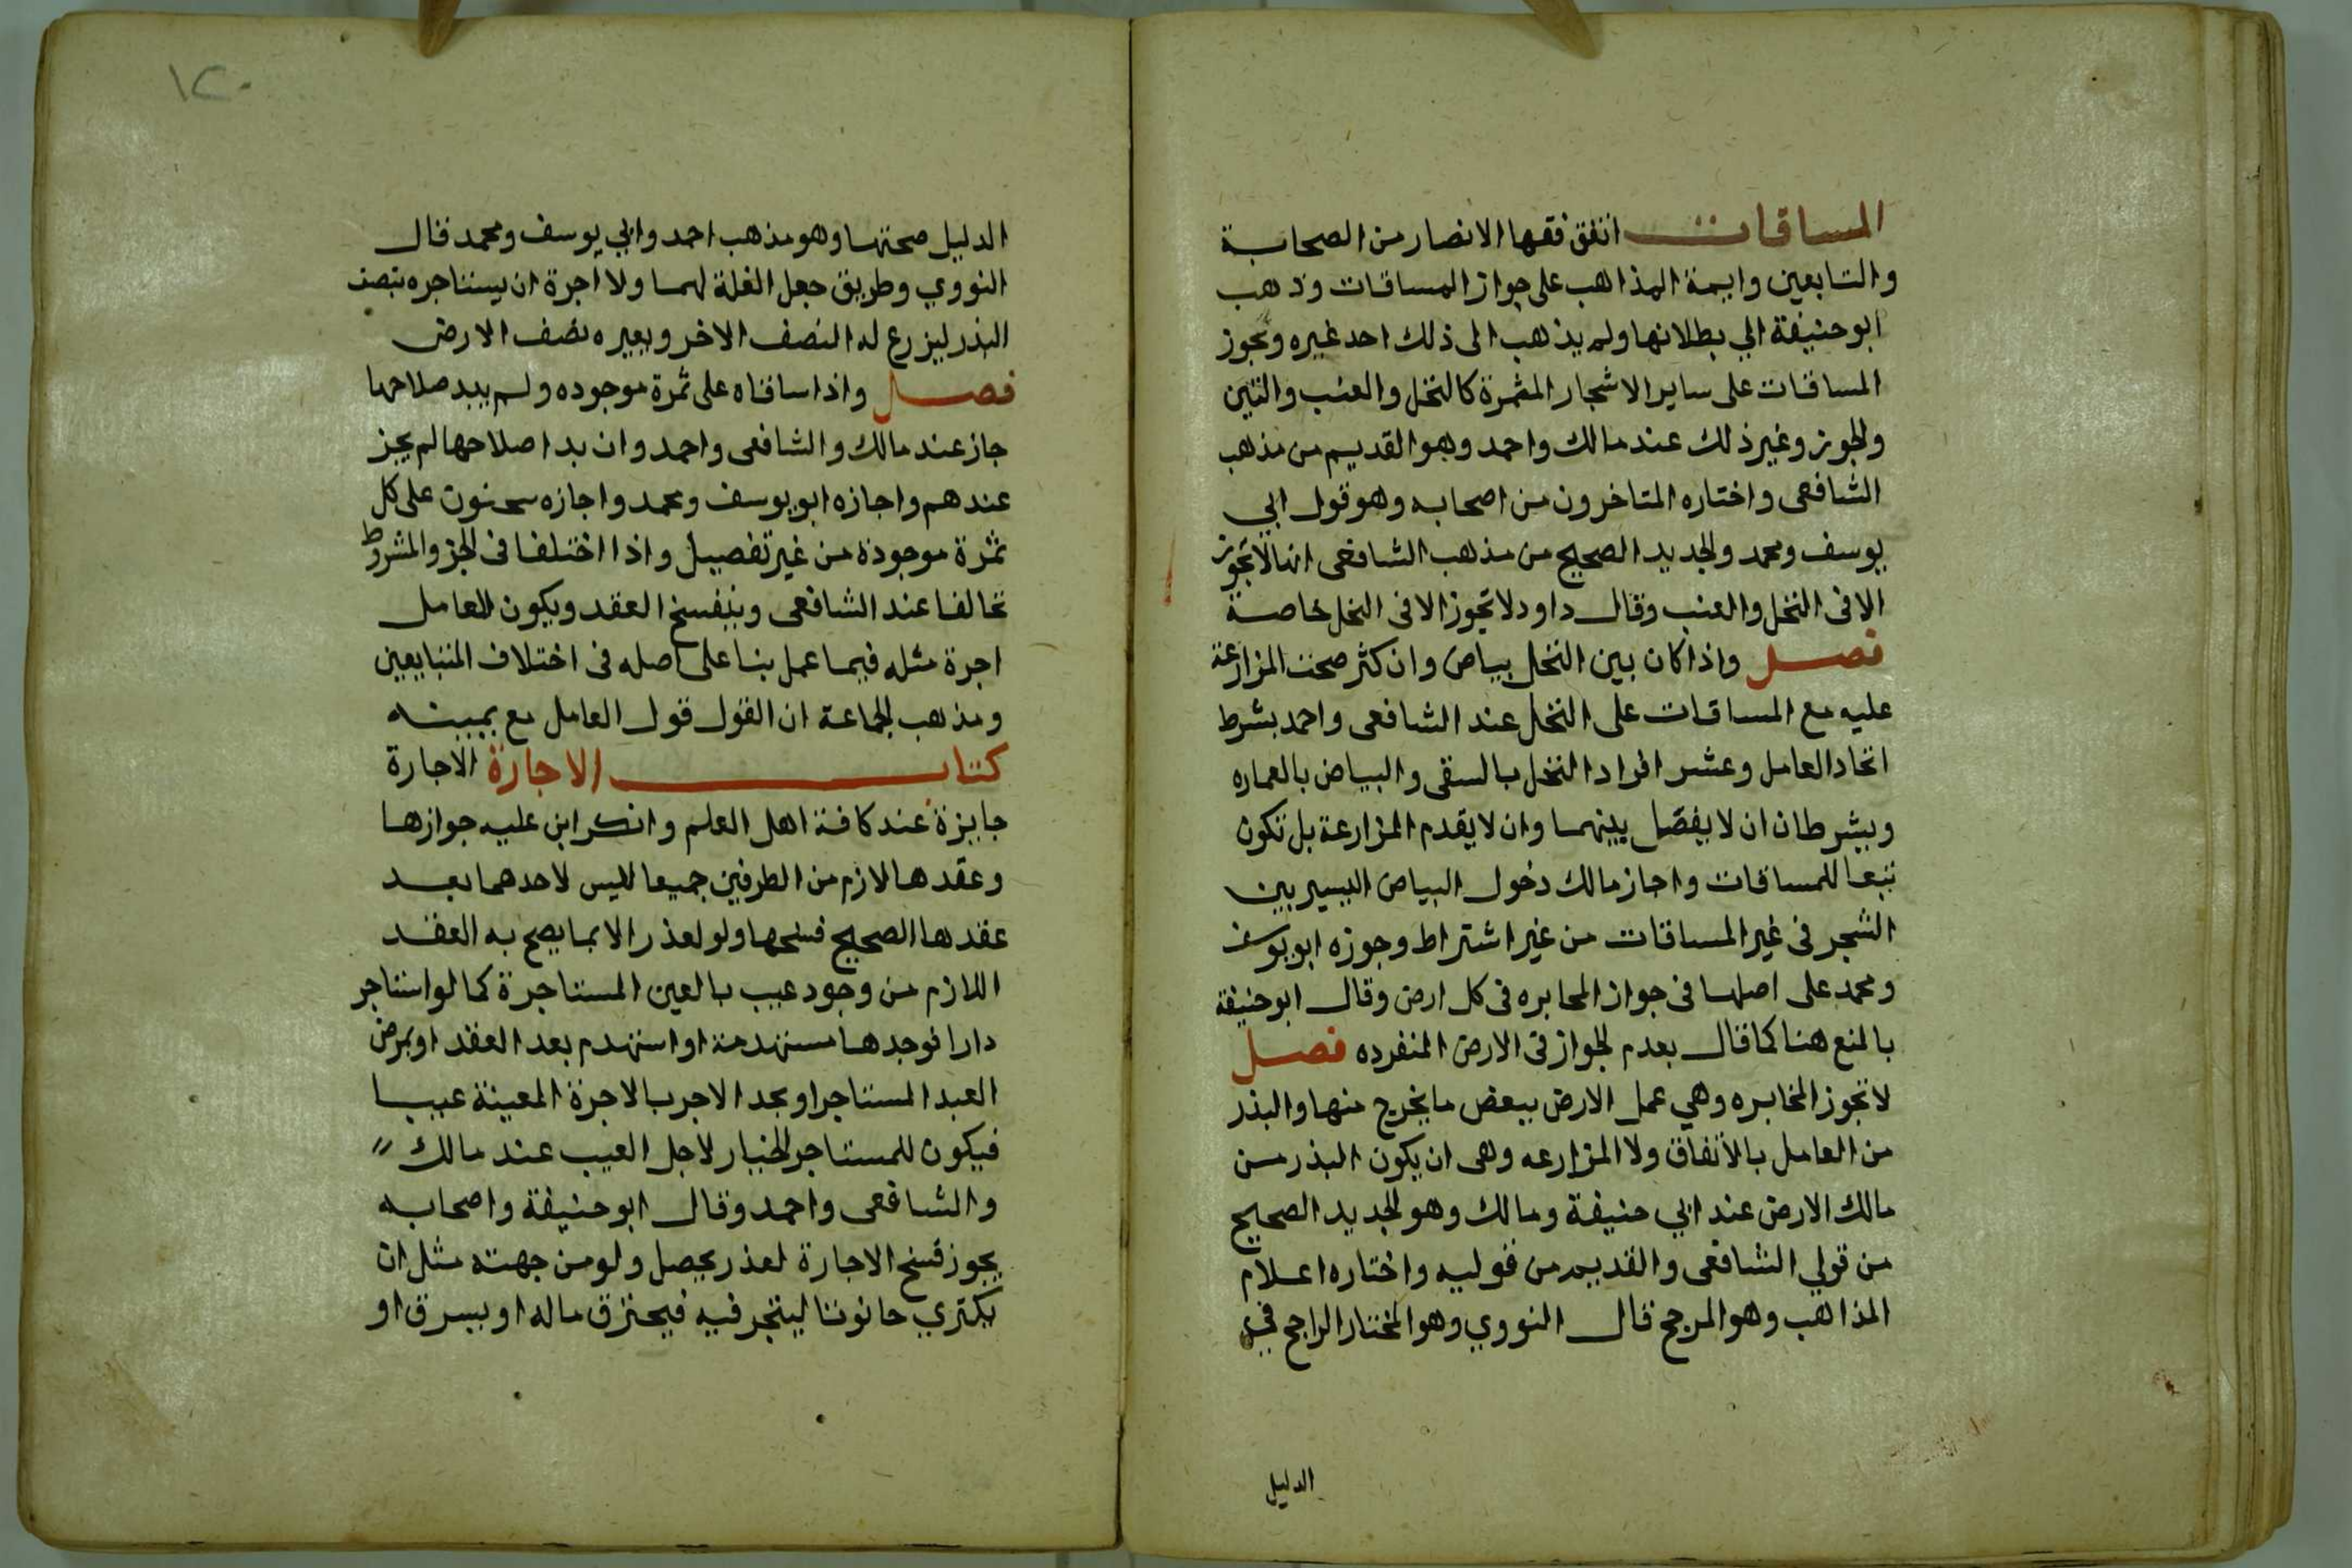 المساقات اتفق فقها الانصار من الصحابة
والتابعين وايمة المذاهب على جواز المساقات وذهب
ابو حنيفة الي بطلانها ولم يذهب الى ذلك احد غيره وتجوز
المساقات على ساير الاشجار المثمرة كالنخل والعنب والتين
والجوز وغير ذلك عند مالك واحمد وهو القديم من مذهب
الشافعى واختاره المتاخرون من اصحابه وهو قول ابي
يوسف ومحمد والجديد الصحيح من مذهب الشافعى انها لا تجوز
الا فى النخل والعنب وقال داود لا تجوز الا فى النخل خاصة
فصل واذا كان بين النخل بياض وان كثر صحت المزارعة
عليه مع المساقات على النخل عند الشافعى واحمد بشرط
اتحاد العامل وعشر افراد النخل بالسقى والبياض بالعماره
وبشرطان ان لا يفصل بينهما وان لا يقدم المزارعة بل تكون
تبعا للمساقات واجاز مالك دخول البياض اليسير بين
الشجر فى غير المساقات من غير اشتراط وجوزه ابو يوسف
ومحمد على اصلهما فى جواز المخابره فى كل ارض وقال ابو حنيفة
بالمنع هنا كما قال بعدم الجواز فى الارض المنفرده فصل
لا تجوز المخابره وهي عمل الارض ببعض ما يخرج منها والبذر
من العامل بالاتفاق ولا المزارعه وهى ان يكون البذر من
مالك الارض عند ابي حنيفة ومالك وهو الجديد الصحيح
من قولي الشافعى والقديم من قوليه واختاره اعلام
المذاهب وهو المرجح قال النووي وهو المختار الراجح في
الدليل
١٢٠
الدليل صحتها وهو مذهب احمد وابي يوسف ومحمد قال
النووي وطريق جعل الغلة لهما ولا اجرة ان يستاجره بنصف
البذر ليزرع له النصف الاخر ويعيره نصف الارض
فصل واذا ساقاه على ثمرة موجوده ولم يبد صلاحها
جاز عند مالك والشافعى واحمد وان بدا صلاحها لم يجز
عندهم واجازه ابو يوسف ومحمد واجازه سحنون على كل
ثمرة موجودة من غير تفصيل واذا اختلفا فى الجز والمشروط
تحالفا عند الشافعى وينفسخ العقد ويكون للعامل
اجرة مثله فيما عمل بنا على اصله فى اختلاف المتبايعين
ومذهب الجماعة ان القول قول العامل مع يمينه
كتاب الاجارة الاجارة
جايزة عند كافة اهل العلم وانكر ابن عليه جوازها
وعقدها لازم من الطرفين جميعا لليس لاحدهما بعد
عقدها الصحيح فسخها ولو لعذر الا بما يصح به العقد
اللازم من وجود عيب بالعين المستاجرة كما لو استاجر
دارا فوجدها مستهدمة او استهدم بعد العقد او يمرض
العبد المستاجر او يجد الاجر بالاجرة المعينة عيبا
فيكون للمستاجر الخيار لاجل العيب عند مالك
والشافعى واحمد وقال ابو حنيفة واصحابه
يجوز فسخ الاجارة لعذر يحصل ولو من جهته مثل ان
يكتري حانوتا ليتجر فيه فيحترق ماله او يسرق او